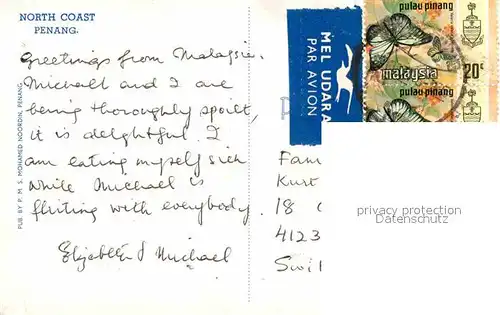 NORTH COAST
PENANG.
Greetings from Malaysia.
Michael and I are
being thoroughly spoilt,
it is delightful. I
am eating myself sick
while Michael is
flirting with everybody.
Elizabeth & Michael
PUB. BY P. M. S. MOHAMED NOORDIN, PENANG.
MEL UDARA
PAR AVION
pulau pinang
malaysia
20c
pulau pinang
Fam
Kurt
18
4123
privacy protection
Datenschutz